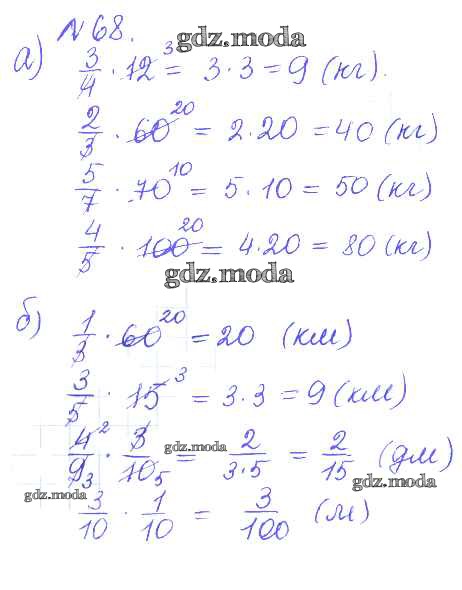 №68.
gdz.moda
а) 3/4 · 12³ = 3·3 = 9 (кг).
2/3 · 60²⁰ = 2·20 = 40 (кг)
5/7 · 70¹⁰ = 5·10 = 50 (кг)
4/5 · 100²⁰ = 4·20 = 80 (кг)
gdz.moda
б) 1/3 · 60²⁰ = 20 (км)
3/5 · 15³ = 3·3 = 9 (км)
4²/9₃ · 3/10₅ = 2/3·5 = 2/15 (дм)
gdz.moda
gdz.moda
gdz.moda
3/10 · 1/10 = 3/100 (м)